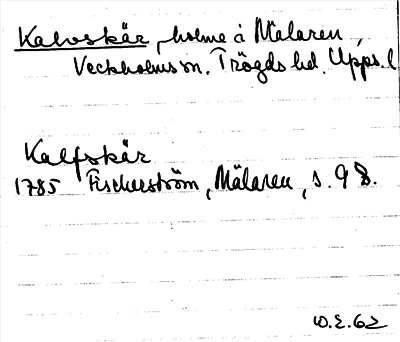 Kalvskär, holme i Mälaren,
Veckholms sn. Trögds hd. Upps. l
Kalfskär
1785 Fischerström, Mälaren, s. 98.
W.E. 62